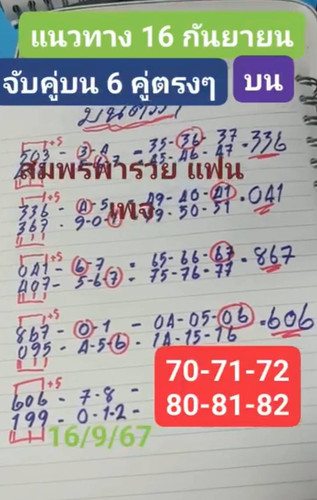 แนวทาง 16 กันยายน
จับคู่บน 6 คู่ตรงๆ บน
บนตรงๆ
+5
503 - 3-4 = 35-36-37 = 336
45-46-47
สมพรพารวย แฟน
เพจ
+5
336 - 4-5 49-40-41 = 041
367 - 9-0- 49-50-51
+5
041 - 6-7 = 65-66-67 = 867
407 - 5-6-7 75-76-77
+5
867 - 0-1 - 04-05-06 = 606
095 - 4-5-6 - 14-15-16
70-71-72
80-81-82
+5
606 - 7-8 -
199 - 0-1-2 -
16/9/67